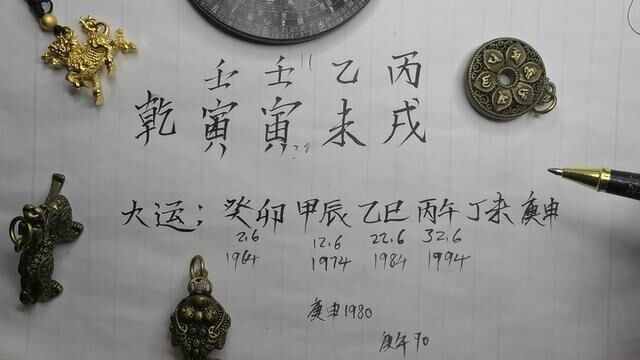 壬 壬 乙 丙
乾 寅 寅 未 戌
大运: 癸卯 甲辰 乙巳 丙午 丁未 庚申
2.6 12.6 22.6 32.6
1964 1974 1984 1994
庚申1980
庚午90